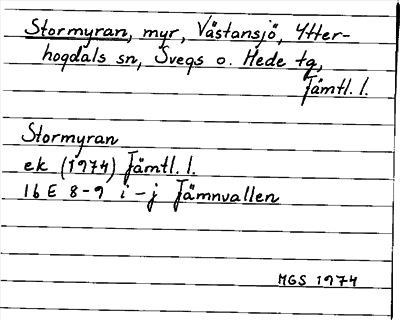 Stormyran, myr, Västansjö, Ytter-
hogdals sn, Svegs o. Hede tg,
Jämtl. l.
Stormyran
ek (1974) Jämtl. l.
16 E 8-9 i-j Jämnvallen
MGS 1974